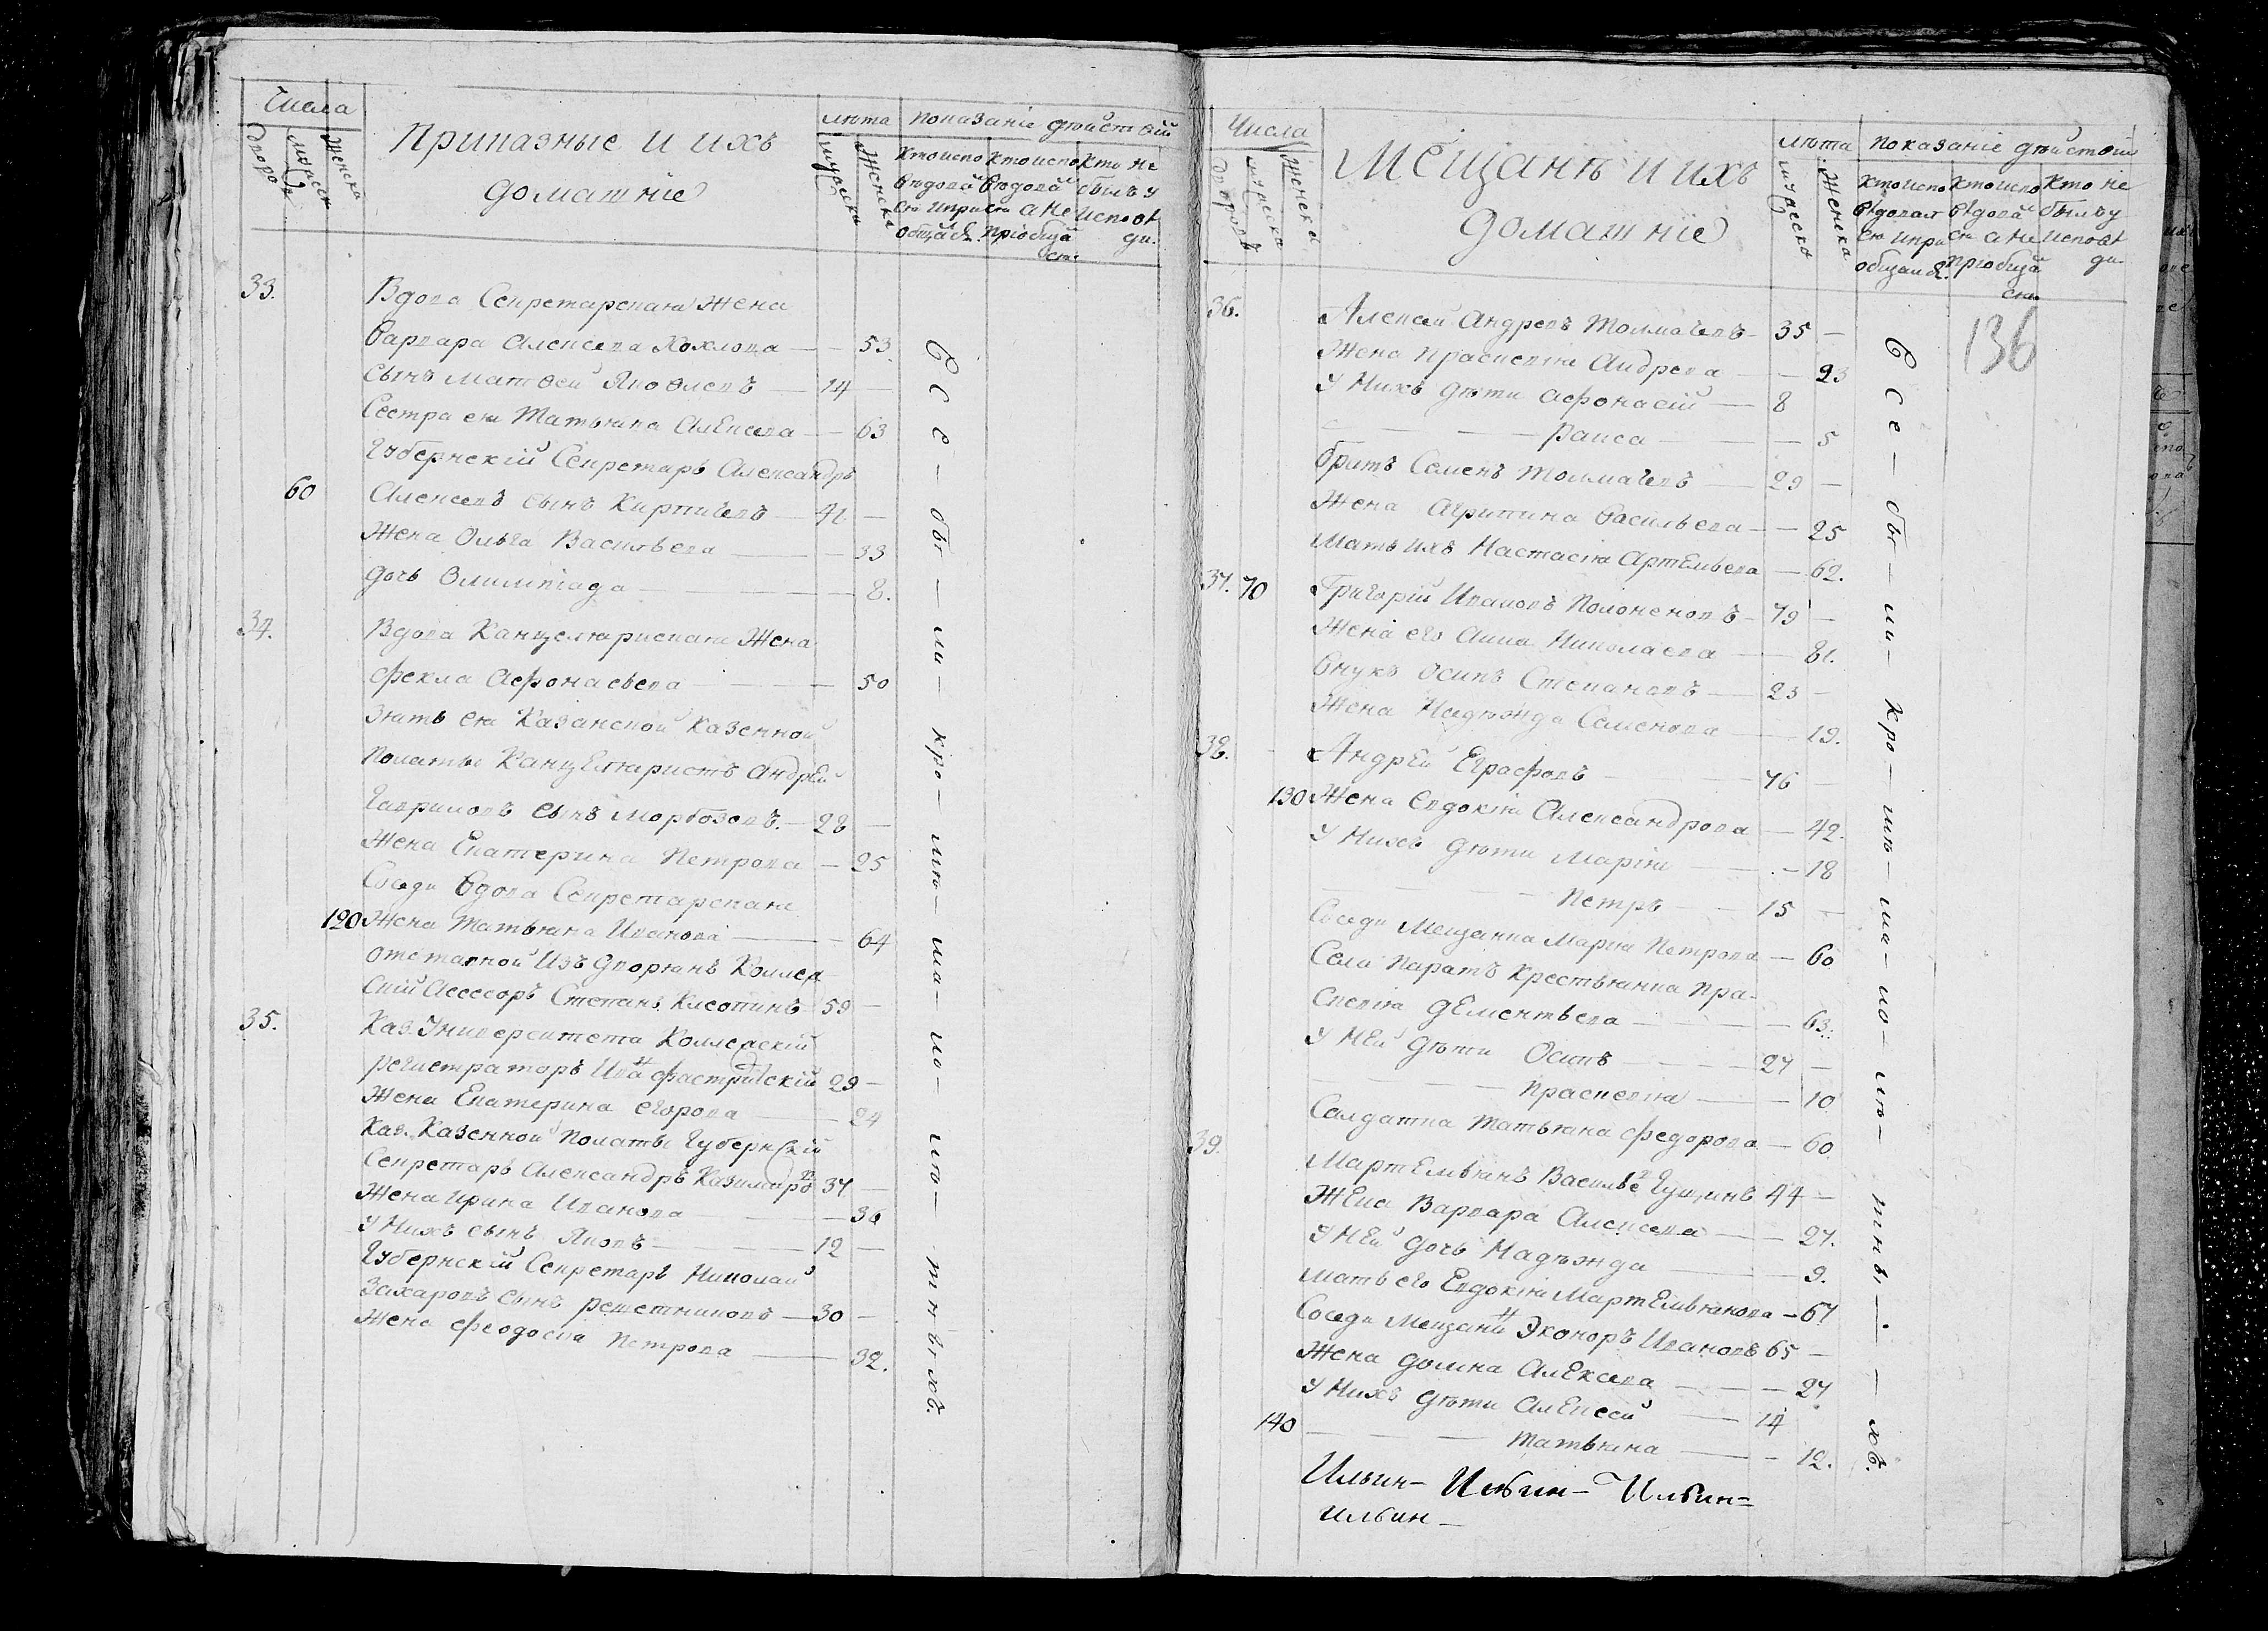 Числа
дворовъ
мужеска
Женска
Приказные и ихъ
домашніе
лѣта
мужеска
Женска
показаніе дѣйствій
Кто испо
вѣдовал
ся и прі
общался.
Кто испо
вѣдовал
ся а не
пріобща
лся.
Кто не
былъ у
исповѣ
ди.
33. Вдова Секретарская Жена
Варвара Алексѣева Хохлова — 53.
Сынъ Матвеи Яковлевъ — 14 —
Сестра ея Татьяна Алексеева — 63
Губернскій Секретарь Александръ
60 Алексеевъ сынъ Кирпичевъ — 41 —
Жена Ольга Васильева — 33
дочь Олимпіада — 8.
34. Вдова Канцеляриская Жена
Фекла Афонасьева — 50
Зять ея Казанской Казенной
Полаты Канцеляристъ Андрей
Гавриловъ сынъ — 28 —
Жена Екатерина Петрова — 25
Соседи Вдова Секретарская
120 Жена Татьяна Иванова — 64
отставной Изъ Дворянъ Коллеж
скій Асессоръ Степанъ — 59 —
35. Каз. Университета Коллежскій
регистраторъ Иван 29 —
Жена Екатерина Егорова — 24
Каз. Казенной Полаты Губернскій
Секретарь Александръ 37 —
Жена Ирина Иванова — 36
У Нихъ сынъ Яковъ — 12 —
Губернскій Секретарь Николай
Захаровъ сынъ Решетниковъ — 30 —
Жена Феодосия Петрова — 32.
Все — бы — ли — кро — мѣ — ма — ло — лѣ — тныхъ.
Числа
дворовъ
мужеска
Женска
Мещанѣ и ихъ
домашніе
лѣта
мужеска
Женска
показаніе дѣйствій
Кто испо
вѣдовал
ся и прі
общался.
Кто испо
вѣдова
ся а не
пріобща
лся.
Кто не
былъ у
исповѣ
ди.
136
36. Алексеи Андревъ Толмачевъ — 35 —
Жена Прасковия Андрева — 23
У Нихъ дѣти Афонасій — 8
— Раиса — 5
братъ Семенъ Толмачевъ — 29 —
Жена Агрипина Васильева — 25
Мать ихъ Настасія Артемьева — 62.
37. 70 Григорій Ивановъ Половеновъ — 79 —
Жена его Анна Николаева — 81.
Внукъ Осипъ Степановъ — 23 —
Жена Надѣжда Семенова — 19.
38. Андрей Еграфовъ — 46 —
130 Жена Евдокія Александрова — 42.
У Нихъ дѣти Марія — 18
— Петръ — 15 —
Соседи Мещанка Мария Петрова — 60
Села Паратъ Крестьянка Пра-
сковія Дементьева — 63.
У Ней дѣти Осипъ — 27 —
— Прасковия — 10
Солдатка Татьяна Федорова — 60
39. Мартемьянъ Василье Гущинъ 44 —
Жена Варвара Алексеева — 27.
У Ней дочь Надѣжда — 9.
Мать его Евдокія Мартемьянова — 67
Соседи Мещани Ивановъ 65 —
Жена Домна Алексева — 27
У Нихъ дѣти Алексей — 14
140 — Татьяна — 12.
Все — бы — ли — кро — мѣ — ма — ло — лѣ — тны — — хъ.
Ильин — Ильин — Ильин =
ильин —